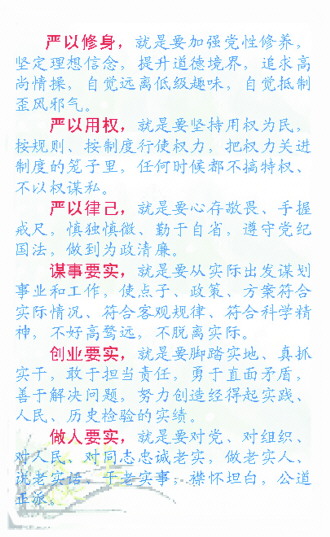 严以修身，就是要加强党性修养，
坚定理想信念，提升道德境界，追求高
尚情操，自觉远离低级趣味，自觉抵制
歪风邪气。
严以用权，就是要坚持用权为民，
按规则、按制度行使权力，把权力关进
制度的笼子里，任何时候都不搞特权、
不以权谋私。
严以律己，就是要心存敬畏、手握
戒尺，慎独慎微、勤于自省，遵守党纪
国法，做到为政清廉。
谋事要实，就是要从实际出发谋划
事业和工作，使点子、政策、方案符合
实际情况、符合客观规律、符合科学精
神，不好高骛远，不脱离实际。
创业要实，就是要脚踏实地、真抓
实干，敢于担当责任，勇于直面矛盾，
善于解决问题，努力创造经得起实践、
人民、历史检验的实绩。
做人要实，就是要对党、对组织、
对人民、对同志忠诚老实，做老实人、
说老实话、干老实事，襟怀坦白，公道
正派。